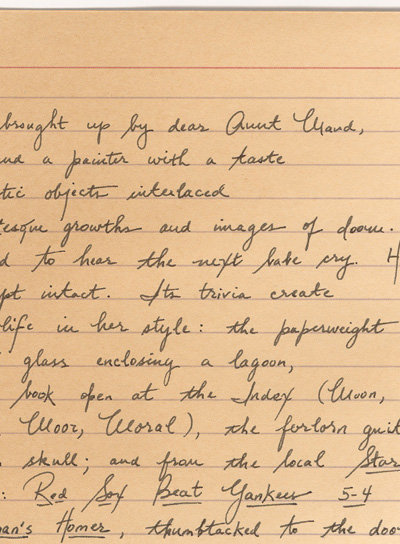 brought up by dear Aunt Maud,
and a painter with a taste
tic objects interlaced
esque growths and images of doom.
d to hear the next babe cry. H
pt intact. Its trivia create
life in her style: the paperweight
glass enclosing a lagoon,
book open at the Index (Moon,
Moor, Moral), the forlorn guit
skull; and from the local Star
: Red Sox Beat Yankees 5-4
man's Homer, thumbtacked to the doo